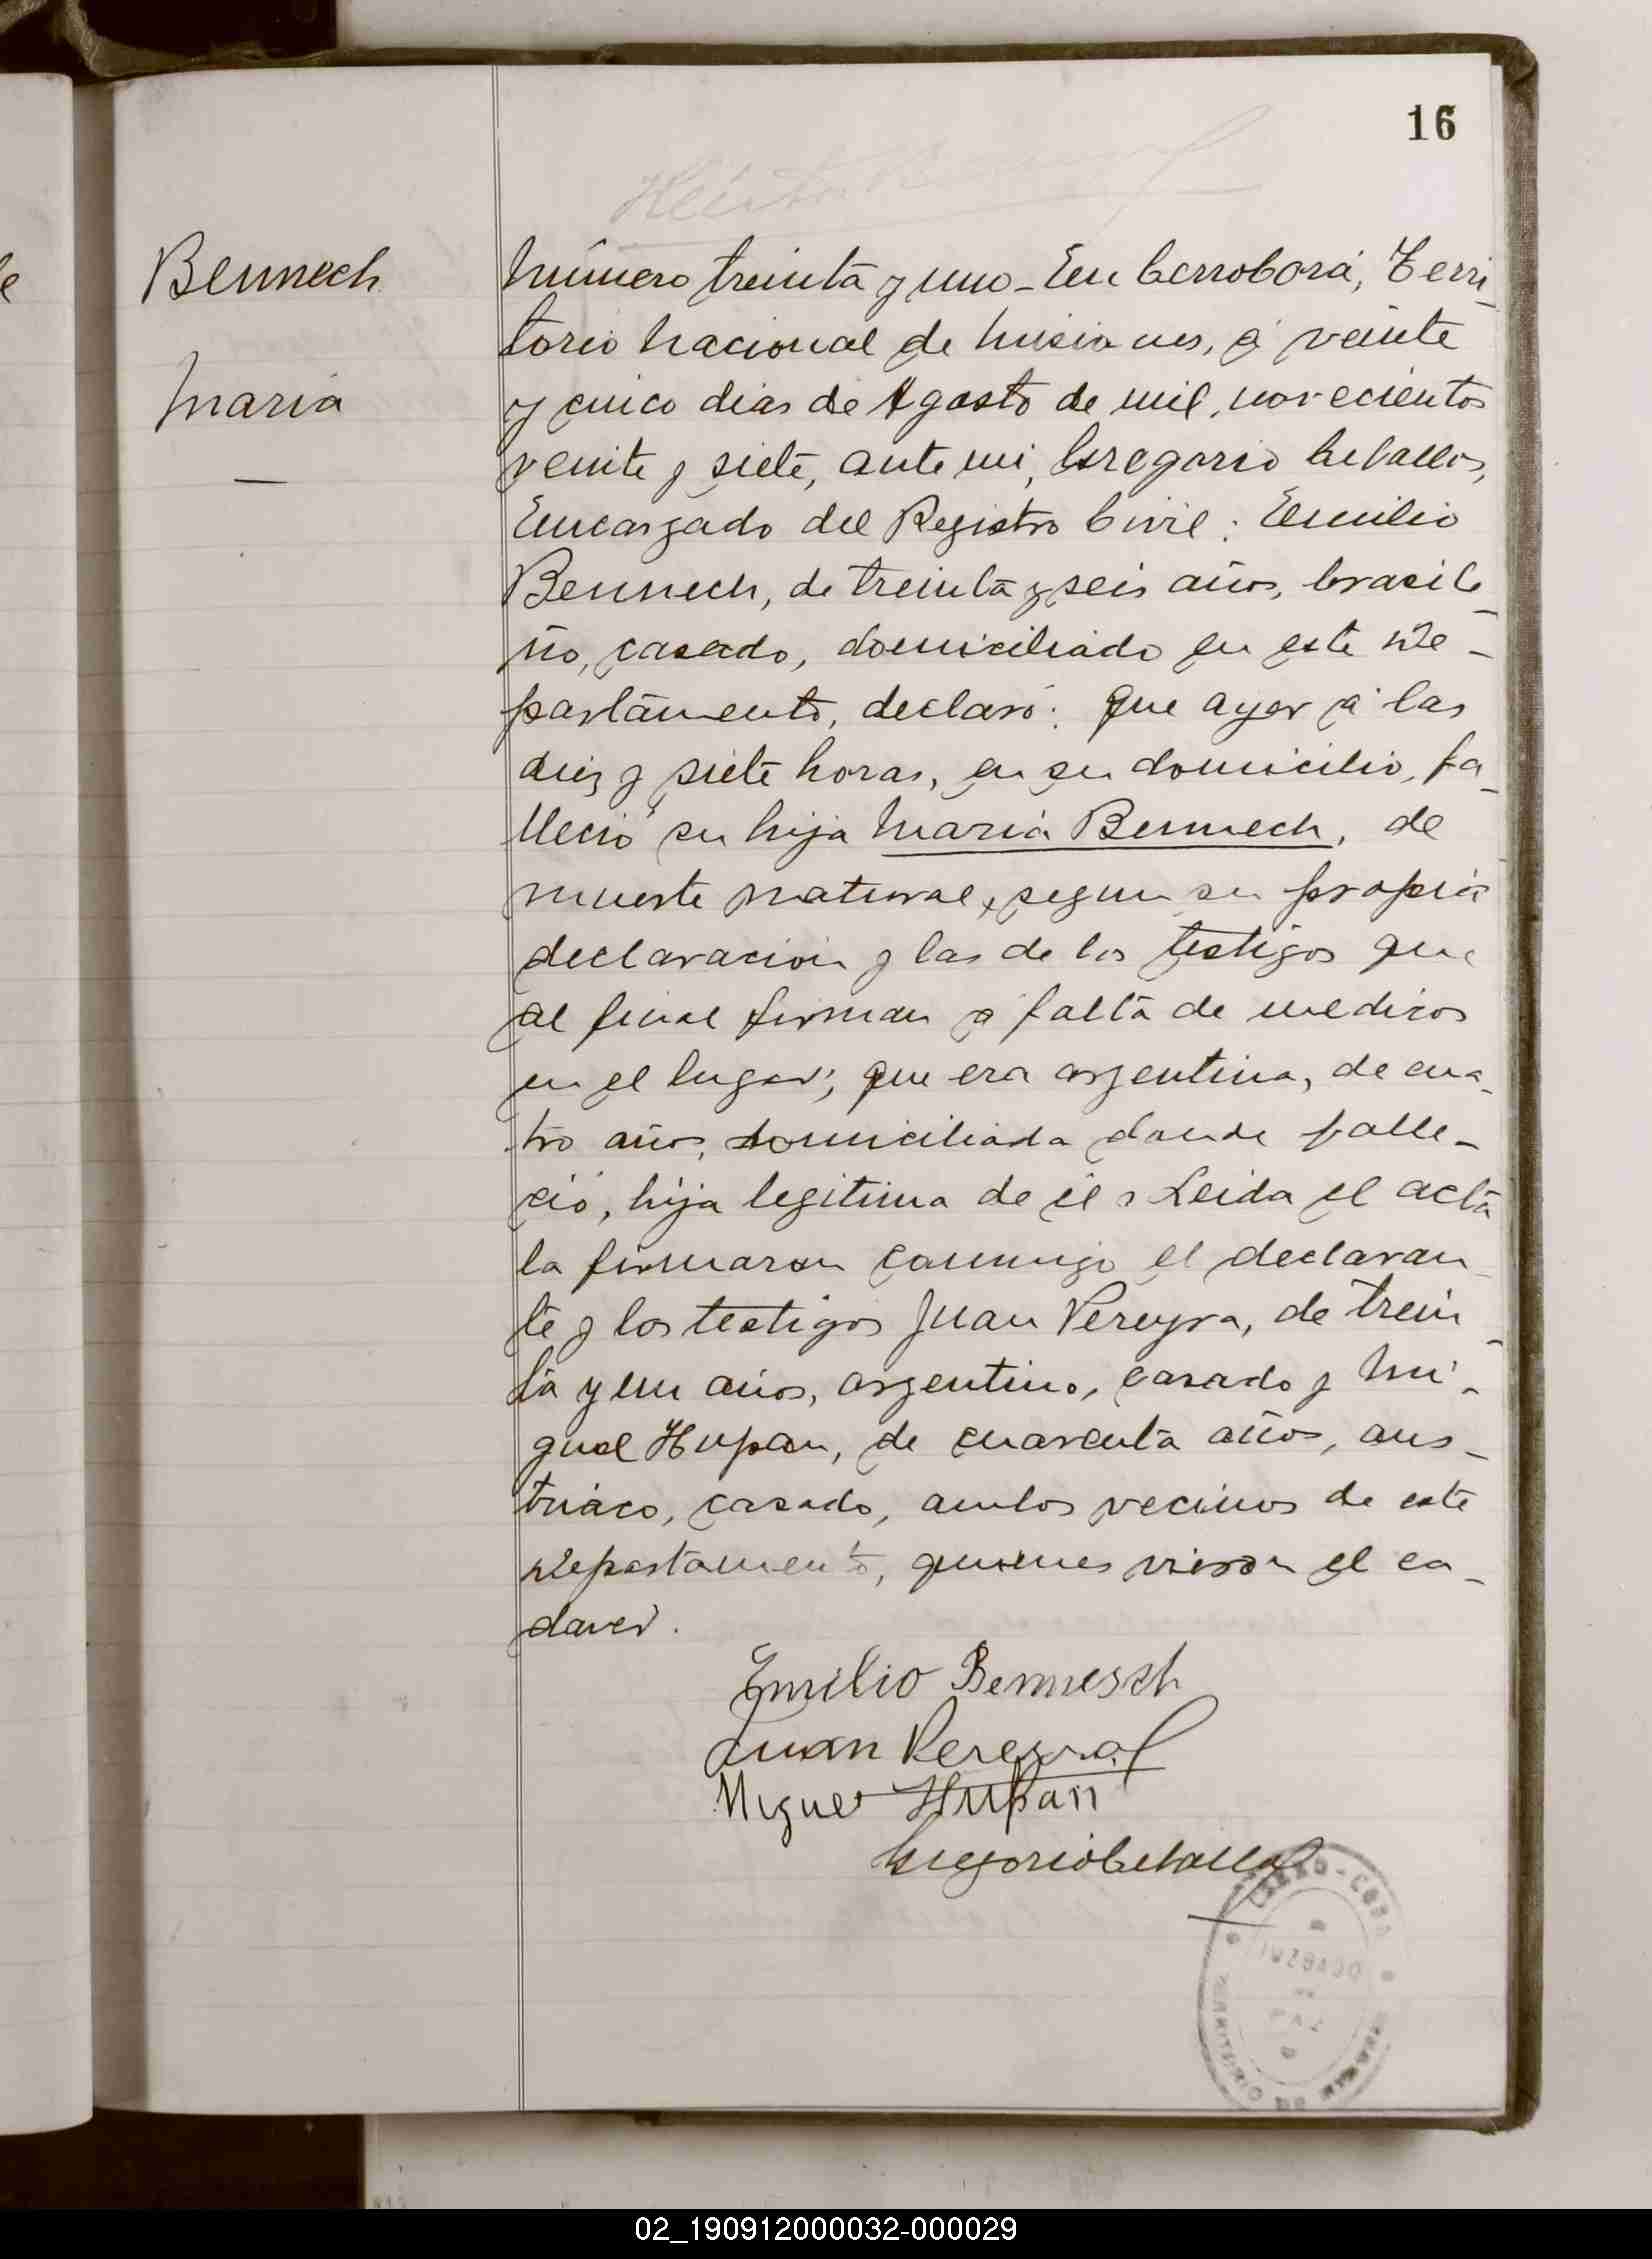 16
Bennech
Maria
Número treinta y uno - En Cerrocorá, Terri-
torio Nacional de Misiones, á veinte
y cinco dias de Agosto de mil, novecientos
veinte y siete, ante mi, Gregorio Ceballos,
Encargado del Registro Civil: Emilio
Bennech, de treinta y seis años, brasile-
ño, casado, domiciliado en este De-
partamento, declaró: que ayer á las
diez y siete horas, en su domicilio, fa-
lleció su hija Maria Bennech, de
muerte natural, segun su propia
declaracion y las de los testigos que
al final firman á falta de medicos
en el lugar; que era argentina, de cua-
tro años, domiciliada donde falle-
ció, hija legitima de él. Leida el acta
la firmaron conmigo el declaran-
te y los testigos Juan Pereyra, de trein-
ta y un años, argentino, casado y Mi-
guel Hupan, de cuarenta años, aus-
triaco, casado, ambos vecinos de este
Departamento, quienes vieron el ca-
daver.
Emilio Bennesch
Juan Pereyra
Miguel Hupan
Gregorio Ceballos
CERRO-CORÁ
JUZGADO
DE
PAZ
TERRITORIO DE MISIONES
02_190912000032-000029